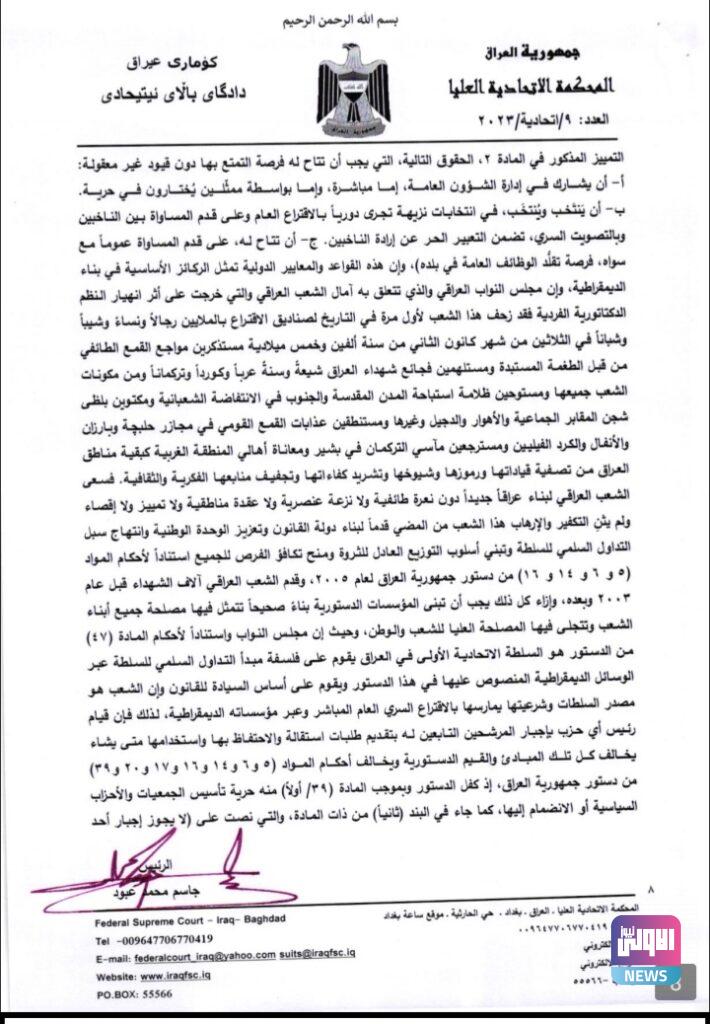 بسم الله الرحمن الرحيم
كۆماری عیراق
دادگای بالای ئیتیحادی
جمهورية العراق
المحكمة الاتحادية العليا
العدد: ٩/اتحادية/٢٠٢٣
التمييز المذكور في المادة ٢، الحقوق التالية، التي يجب أن تتاح له فرصة التمتع بها دون قيود غير معقولة:
أ- أن يشارك في إدارة الشؤون العامة، إما مباشرة، وإما بواسطة ممثلين يُختارون في حرية.
ب- أن يَنتخب ويُنتخَب، في انتخابات نزيهة تجرى دورياً بالاقتراع العام وعلى قدم المساواة بين الناخبين
وبالتصويت السري، تضمن التعبير الحر عن إرادة الناخبين. ج- أن تتاح له، على قدم المساواة عموماً مع
سواه، فرصة تقلُّد الوظائف العامة في بلده)، وإن هذه القواعد والمعايير الدولية تمثل الركائز الأساسية في بناء
الديمقراطية، وإن مجلس النواب العراقي والذي تتعلق به آمال الشعب العراقي والتي خرجت على أثر انهيار النظم
الدكتاتورية الفردية فقد زحف هذا الشعب لأول مرة في التاريخ لصناديق الاقتراع بالملايين رجالاً ونساءً وشيباً
وشباناً في الثلاثين من شهر كانون الثاني من سنة ألفين وخمس ميلادية مستذكرين مواجع القمع الطائفي
من قبل الطغمة المستبدة ومستلهمين فجائع شهداء العراق شيعةً وسنةً عرباً وكورداً وتركماناً ومن مكونات
الشعب جميعها ومستوحين ظلامة استباحة المدن المقدسة والجنوب في الانتفاضة الشعبانية ومكتوين بلظى
شجن المقابر الجماعية والأهوار والدجيل وغيرها ومستنطقين عذابات القمع القومي في مجازر حلبجة وبارزان
والأنفال والكرد الفيليين ومسترجعين مآسي التركمان في بشير ومعاناة أهالي المنطقة الغربية كبقية مناطق
العراق من تصفية قياداتها ورموزها وشيوخها وتشريد كفاءاتها وتجفيف منابعها الفكرية والثقافية. فسعى
الشعب العراقي لبناء عراقاً جديداً دون نعرة طائفية ولا نزعة عنصرية ولا عقدة مناطقية ولا تمييز ولا إقصاء
ولم يثنِ التكفير والإرهاب هذا الشعب من المضي قدماً لبناء دولة القانون وتعزيز الوحدة الوطنية وانتهاج سبل
التداول السلمي للسلطة وتبني أسلوب التوزيع العادل للثروة ومنح تكافؤ الفرص للجميع استناداً لأحكام المواد
(٥ و ٦ و ١٤ و ١٦) من دستور جمهورية العراق لعام ٢٠٠٥، وقدم الشعب العراقي آلاف الشهداء قبل عام
٢٠٠٣ وبعده، وإزاء كل ذلك يجب أن تبنى المؤسسات الدستورية بناءً صحيحاً تتمثل فيها مصلحة جميع أبناء
الشعب وتتجلى فيها المصلحة العليا للشعب والوطن، وحيث إن مجلس النواب واستناداً لأحكام المادة (٤٧)
من الدستور هو السلطة الاتحادية الأولى في العراق يقوم على فلسفة مبدأ التداول السلمي للسلطة عبر
الوسائل الديمقراطية المنصوص عليها في هذا الدستور ويقوم على أساس السيادة للقانون وإن الشعب هو
مصدر السلطات وشرعيتها يمارسها بالاقتراع السري العام المباشر وعبر مؤسساته الديمقراطية، لذلك فإن قيام
رئيس أي حزب بإجبار المرشحين التابعين له بتقديم طلبات استقالة والاحتفاظ بها واستخدامها متى يشاء
يخالف كل تلك المبادئ والقيم الدستورية ويخالف أحكام المواد (٥ و ٦ و ١٤ و ١٦ و ١٧ و ٢٠ و ٣٩)
من دستور جمهورية العراق، إذ كفل الدستور وبموجب المادة (٣٩/ أولاً) منه حرية تأسيس الجمعيات والأحزاب
السياسية أو الانضمام إليها، كما جاء في البند (ثانياً) من ذات المادة، والتي نصت على (لا يجوز إجبار أحد
الرئيس
جاسم محمد عبود
٨
Federal Supreme Court - Iraq- Baghdad
Tel -009647706770419
E-mail: federalcourt_iraq@yahoo.com suits@iraqfsc.iq
Website: www.iraqfsc.iq
PO.BOX: 55566
المحكمة الاتحادية العليا . العراق . بغداد . حي الحارثية . موقع ساعة بغداد
٠٠٩٦٤٧٧٠٦٧٧٠٤١٩
الالكتروني
الالكتروني
٥٥٥٦٦
الاولى نيوز
NEWS
8